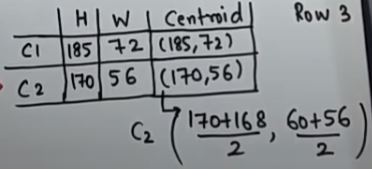 H W Centroid Row 3
C1 185 72 (185,72)
C2 170 56 (170,56)
C2 (170+168/2, 60+56/2)